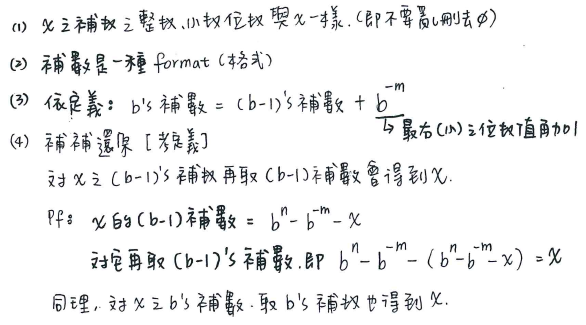 (1) x之補数之整数、小数位数與x一樣.(即不要亂刪去0)
(2) 補數是一種 format (格式)
(3) 依定義: b's 補數 = (b-1)'s 補數 + b^{-m}
↳ 最右(小)之位数值再加1
(4) 補補還原 [考定義]
対x之 (b-1)'s 補数再取 (b-1) 補數會得到x.
pf: x的(b-1)補數 = b^n - b^{-m} - x
対它再取 (b-1)'s 補數.即 b^n - b^{-m} - (b^n - b^{-m} - x) = x
同理, 対x之 b's 補數.取 b's 補数也得到x.